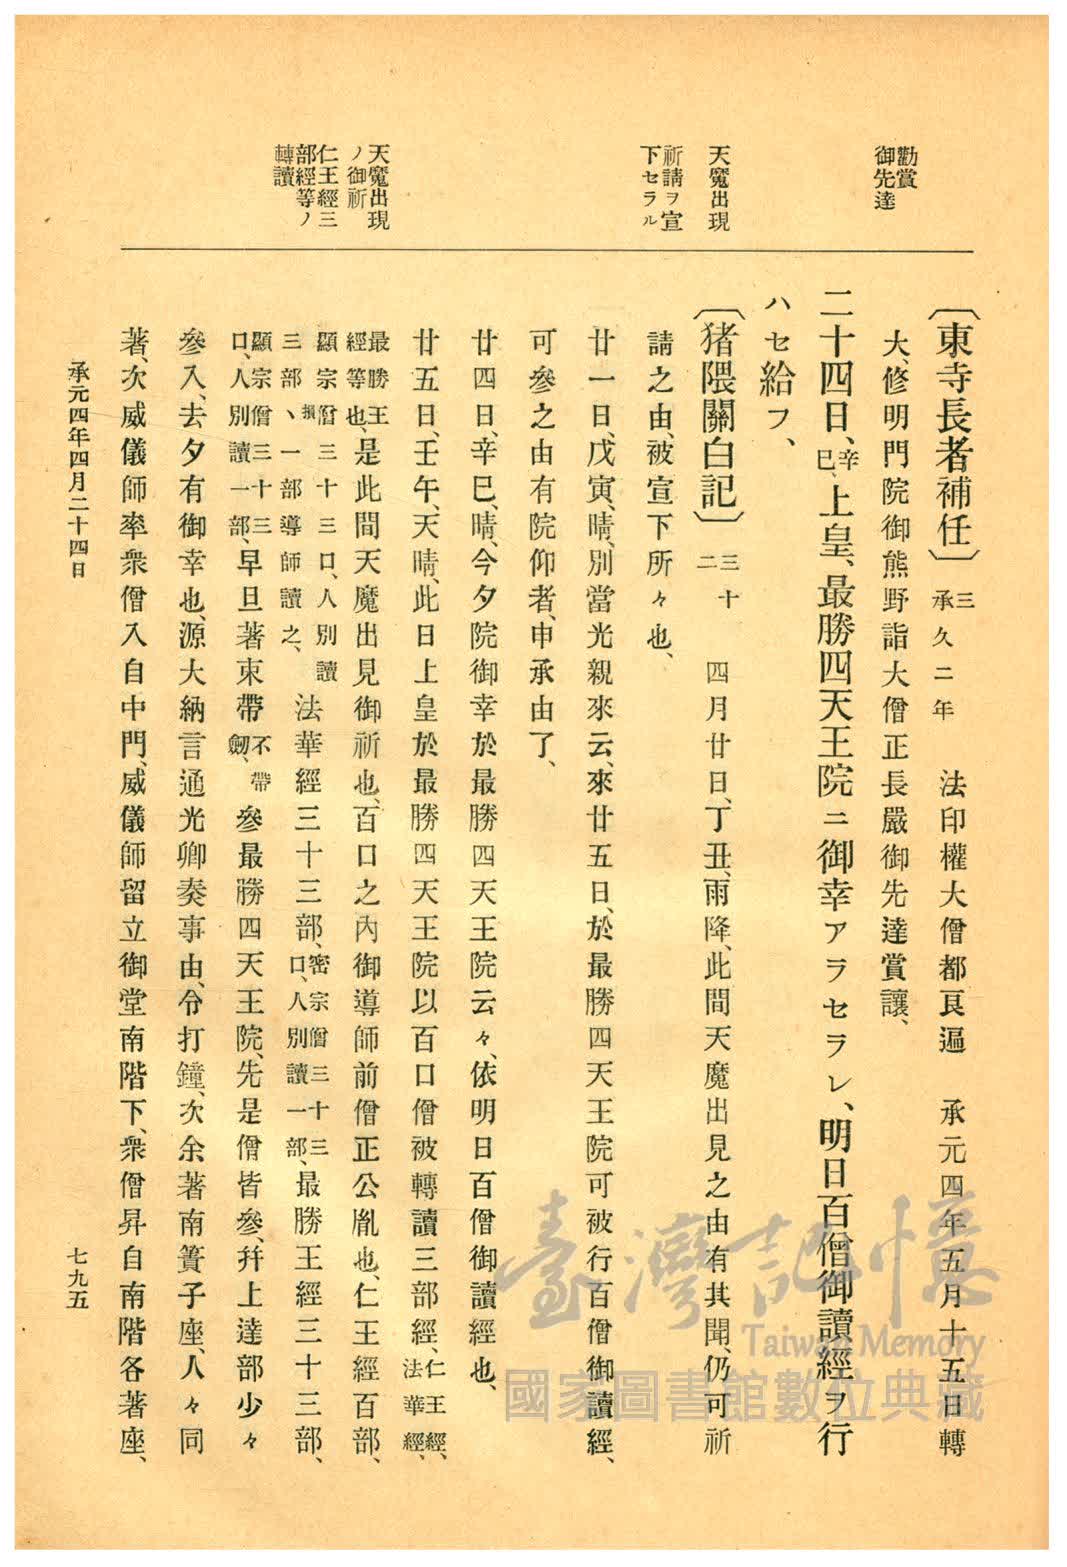 勸賞
御先達
天魔出現
祈請ヲ宣
下セラル
天魔出現
ノ御祈
仁王經三
部經等ノ
轉讀
〔東寺長者補任〕三承久二年　法印權大僧都良遍　承元四年五月十五日轉
大、修明門院御熊野詣大僧正長嚴御先達賞讓、
二十四日、辛巳、上皇、最勝四天王院ニ御幸アラセラレ、明日百僧御讀經ヲ行
ハセ給フ、
〔猪隈關白記〕三十二　四月廿日、丁丑、雨降、此間天魔出見之由有其聞、仍可祈
請之由、被宣下所々也、
廿一日、戊寅、晴、別當光親來云、來廿五日、於最勝四天王院可被行百僧御讀經、
可參之由有院仰者、申承由了、
廿四日、辛巳、晴、今夕院御幸於最勝四天王院云々、依明日百僧御讀經也、
廿五日、壬午、天晴、此日上皇於最勝四天王院以百口僧被轉讀三部經、仁王經、法華經、
最勝王經等也、是此間天魔出見御祈也、百口之內御導師前僧正公胤也、仁王經百部、
顯宗僧三十三口、人別讀三部、損一部導師讀之、法華經三十三部、密宗僧三十三口、人別讀一部、最勝王經三十三部、
顯宗僧三十三口、人別讀一部、早旦著束帶不帶劒、參最勝四天王院、先是僧皆參、幷上達部少々
參入、去夕有御幸也、源大納言通光卿奏事由、令打鐘、次余著南簀子座、人々同
著、次威儀師率衆僧入自中門、威儀師留立御堂南階下、衆僧昇自南階各著座、
承元四年四月二十四日
七九五
臺灣記憶
Taiwan Memory
國家圖書館數位典藏